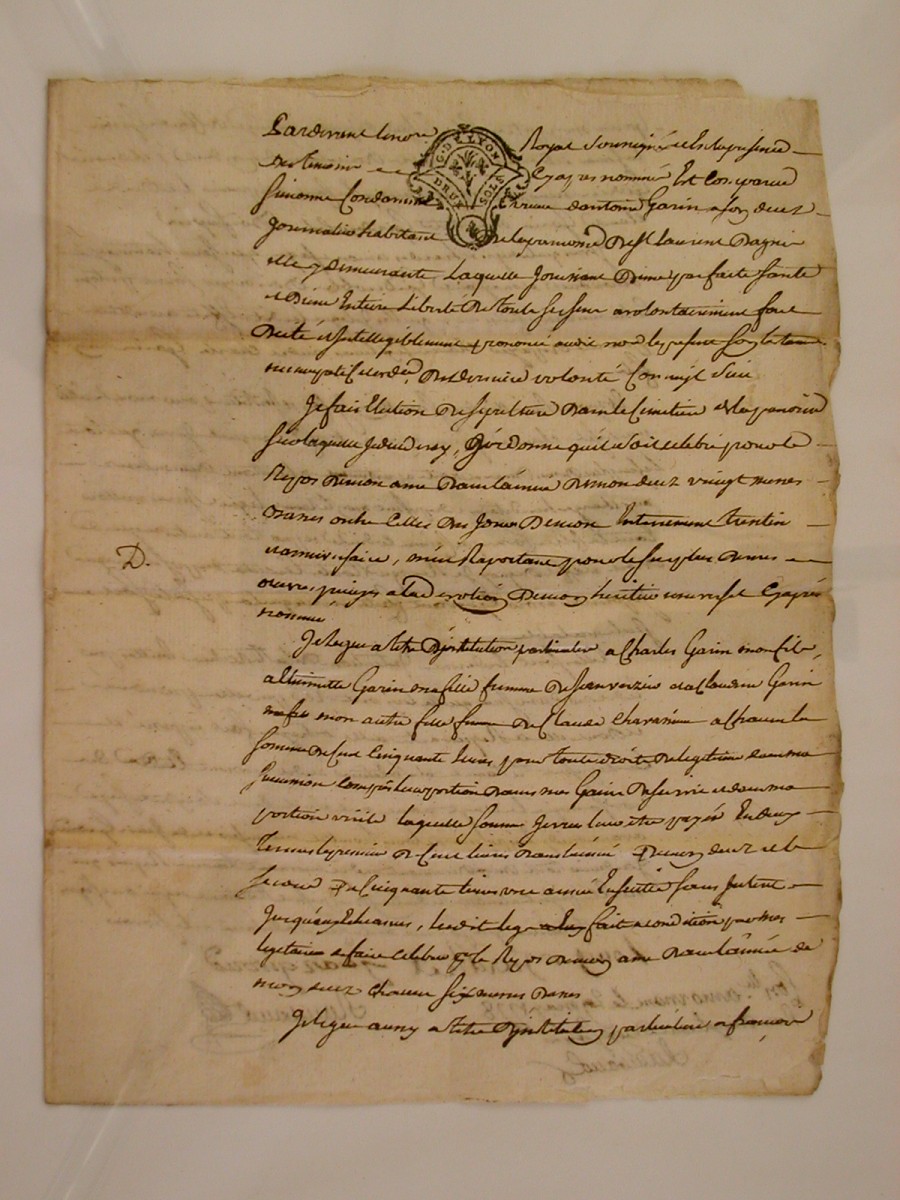 Pardevant le no.re Royal soussigné et en la présence
des témoins cy après nommés Est comparue
G. D. LYON
DEUX SOLS
simonne Condamine veuve d'antoine Garin a son décéz
Journalier habitante de la paroisse de St Laurent Dagni
elle y demeurante Laquelle Jouissant D'une parfaite santé
et D'une Entiere Liberté De tous ses sens a volontairement fait
Dicté et Intelligiblement prononcé audit no.re le présent son testament
nuncupatif et ordce De derniere volonté Comme s'en suit
Je fais Election De sépulture Dans le Cimetiere de la paroisse
sur laquelle Je décéderay, J'ordonne qu'il soit célébré pour le
Repos De mon ame Dans l'année De mon décéz vingt messes
basses outre Celles Des Jours De mon Enterrement trentin
et anniversaire, m'en Raportant pour le surplus Des bonnes
œuvres pieuses a la Dévotion De mon héritier universel Cy après
nommé
D.
Je legue a titre D'institution particuliere a Charles Garin mon fils,
a Garin ma fille femme De Jean et a Claudine Garin
mon autre fille femme De Claude a Chacun la
somme De Cent Cinquante livres pour tous droits De légitime dans ma
succession Compris leur portion Dans mes Gains De survie et dans ma
portion virile laquelle somme Je veux leur être payée En deux
Termes le premier De Cent livres Dans l'année De mon décéz et le
second De Cinquante livres une année Ensuite sans Intérêt
Jusqu'aux Echeances, ledit legs fait a condition par mes
légataires de faire célébrer pr le Repos De mon ame Dans l'année de
mon décéz Chacun six messes basses
Je legue aussy a titre D'institution particuliere a françoise